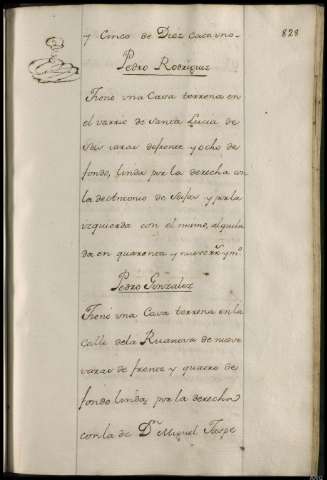 y Cinco de Diez cada uno.
828
Pedro Rodriguez
Tiene vna Casa terrena en
el varrio de Santa Lucia de
Seis varas de frente y ocho de
fondo, linda por la derecha con
la de Antonio de y por la
izquierda con el mismo, alquila
da en quarenta y nueve rr.s y m.s
Pedro Gonzalez
Tiene vna Casa terrena en la
Calle de la Ruanova de nueve
varas de frente y quatro de
fondo linda por la derecha
con la de D.n Miguel